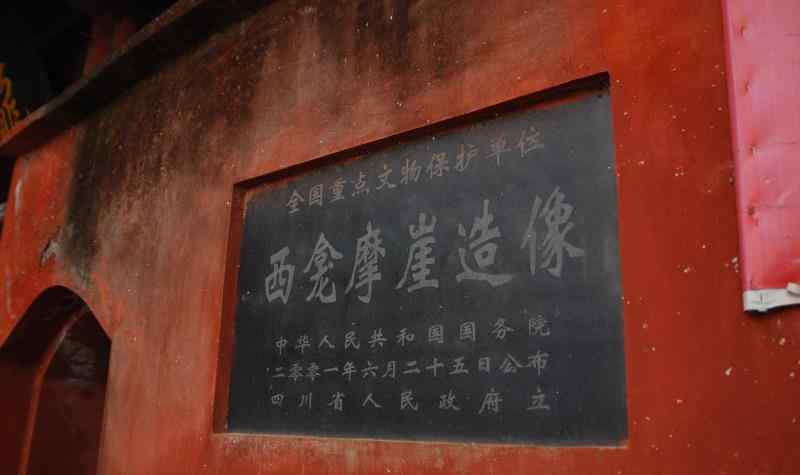 全国重点文物保护单位
西龛摩崖造像
中华人民共和国国务院
二零零一年六月二十五日公布
四川省人民政府立